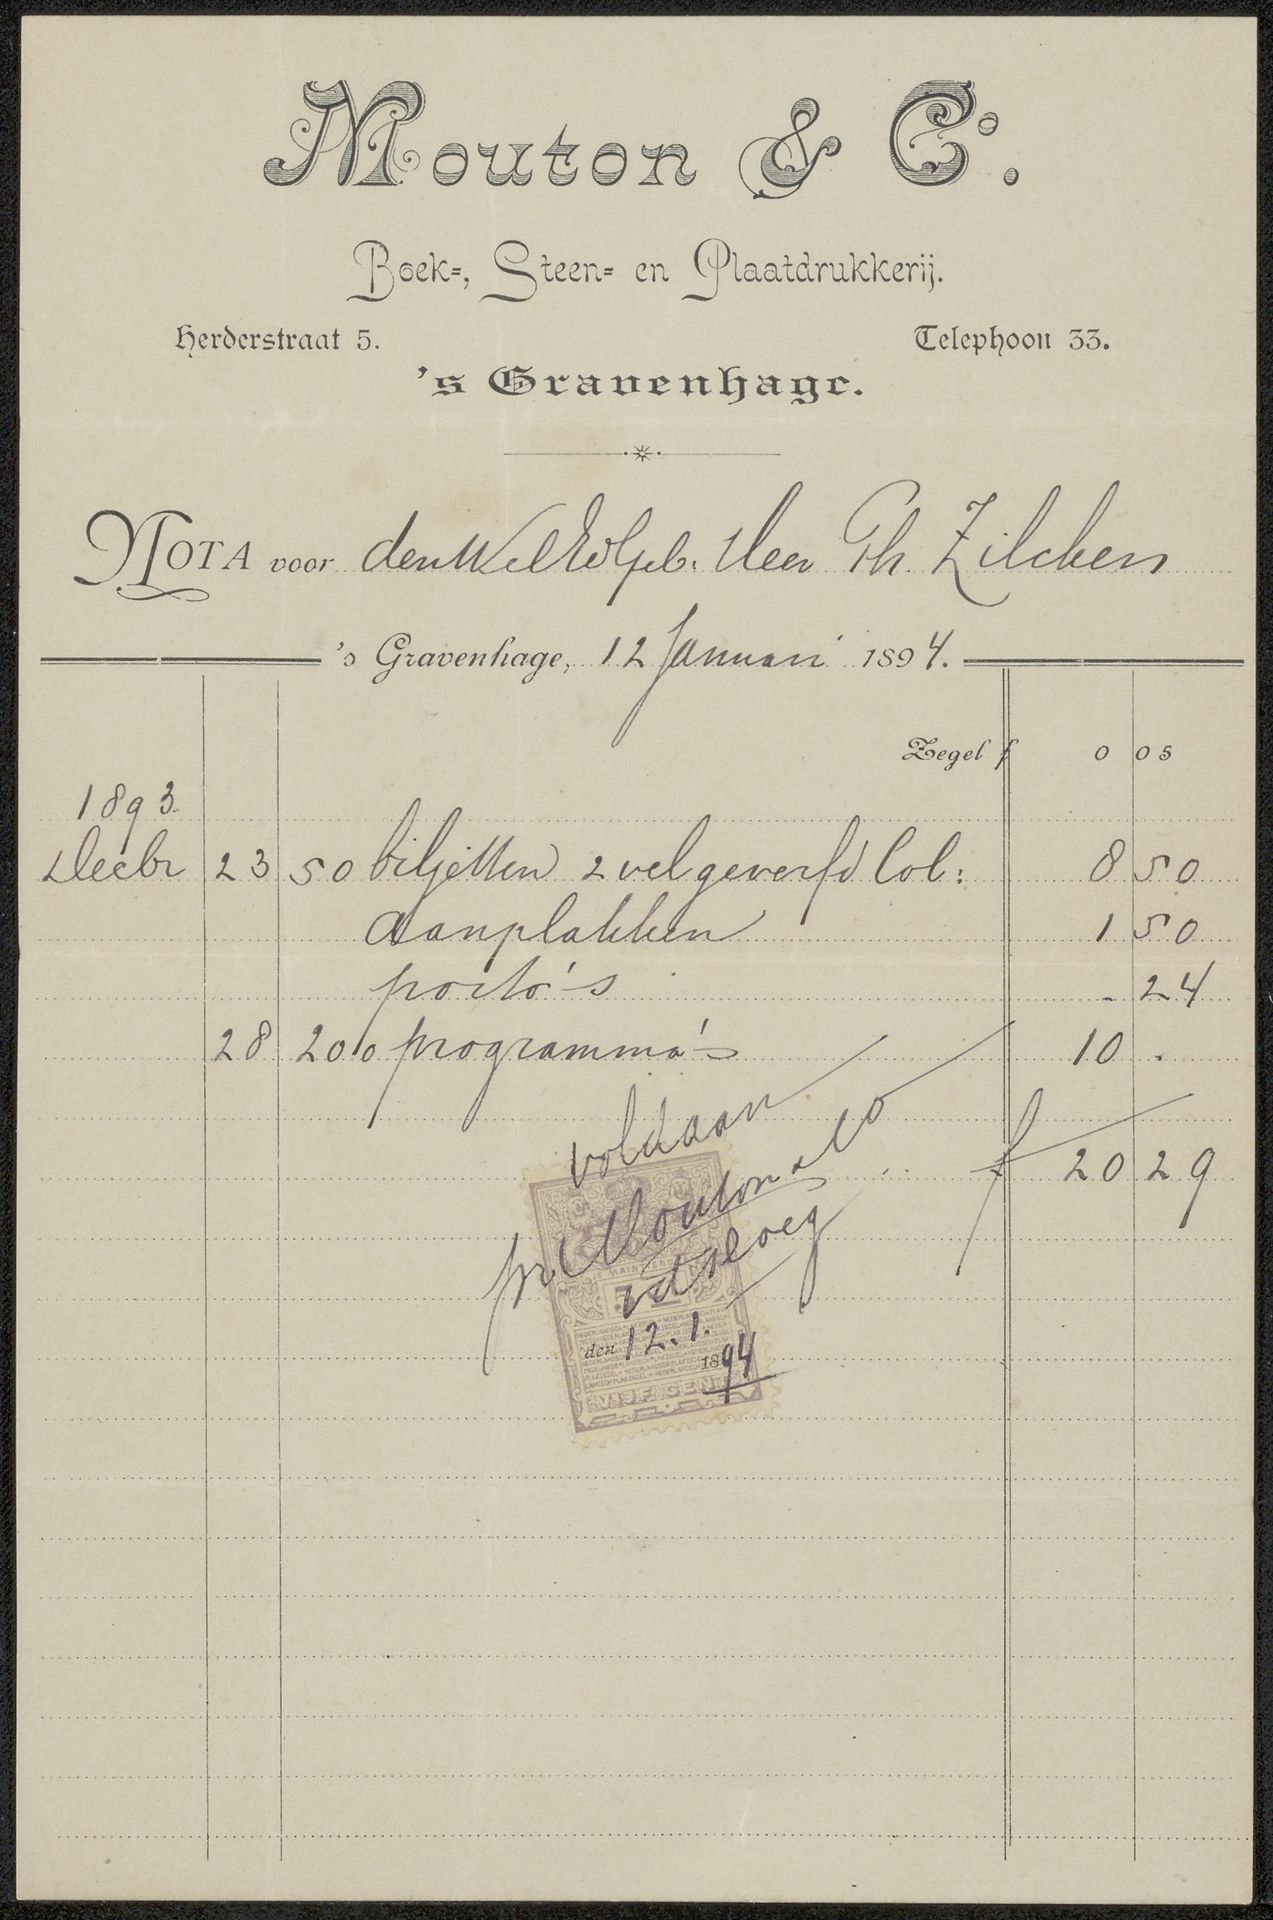 Mouton & Co.
Boek-, Steen- en Plaatdrukkerij.
Herderstraat 5. Telephoon 33.
's Gravenhage.
NOTA voor den WelEdlgeb. Heer Ph. Zilcken
's Gravenhage, 12 Januari 1894.
Zegel f 0 05
1893
Decbr 23 50 biljetten 2 vel geverfd Col: 8 50
aanplakken 1 50
porto's - 24
28 200 programma's 10 .
f 20 29
voldaan
pr Mouton & Co
den 12.1. 1894
VIJF CENT